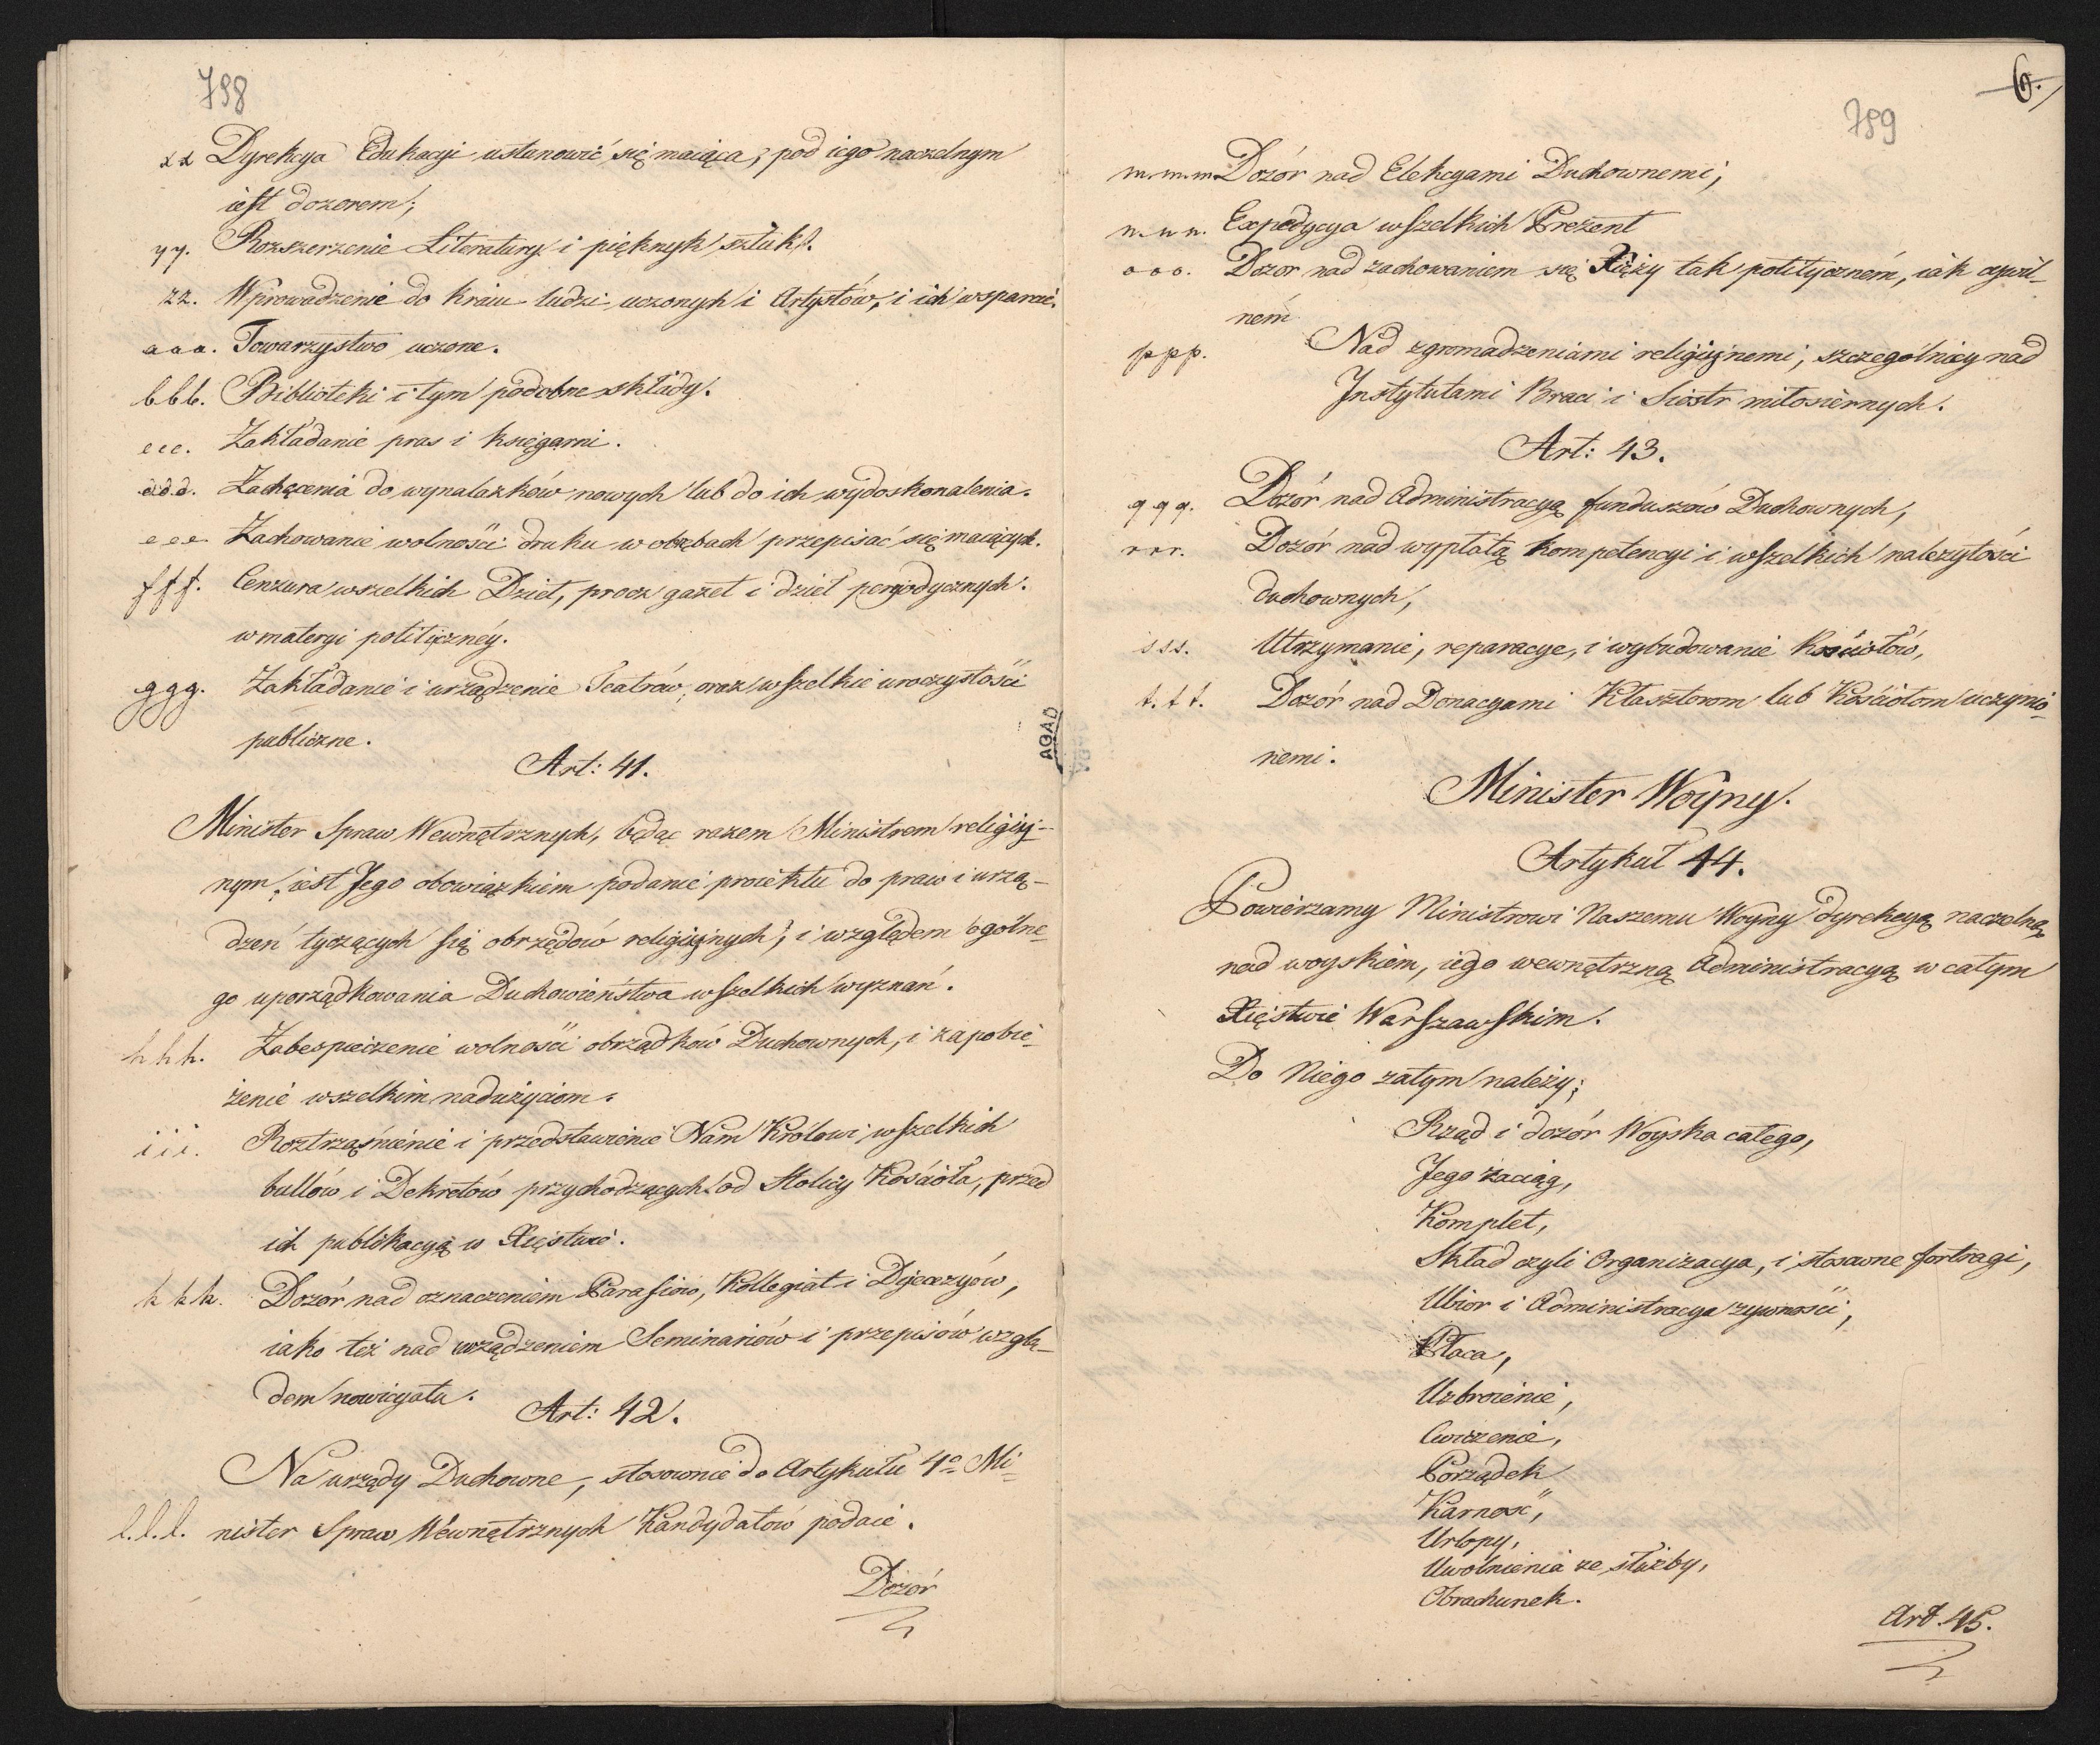 798
xx Dyrekcya Edukacyi ustanowić się maiąca, pod iego naczelnym
iest dozorem;
yy. Rozszerzenie Literatury i pięknych sztuk.
zz. Wprowadzenie do kraiu ludzi uczonych i Artystów, i ich wsparcie.
aaa. Towarzystwo uczone.
bbb. Biblioteki i tym podobne składy.
ccc. Zakładanie pras i księgarni.
ddd. Zachęcenia do wynalazków nowych lub do ich wydoskonalenia.
eee. Zachowanie wolności druku w obrębach przepisać się maiących.
fff. Cenzura wszelkich Dzieł, procz gazet i dzieł peryodycznych.
w materyi polityczney.
ggg. Zakładanie i urządzenie Teatrów, oraz wszelkie uroczystości
publiczne.
Art: 41.
Minister Spraw Wewnętrznych, będąc razem Ministrem religiy-
nym, iest Jego obowiązkiem podanie proiektu do praw i urzą-
dzeń tyczących się obrzędów religiynych, i względem ogólne-
go uporządkowania Duchowieństwa wszelkich wyznań.
hhh. Zabespieczenie wolności obrządków Duchownych, i zapobie-
żenie wszelkim nadużyciom.
iii. Roztrząśnienie i przedstawienie Nam Królowi wszelkich
bullów i Dekretów przychodzących od Stolicy Kościoła, przed
ich publikacyą w Xięstwie.
kkk. Dozór nad oznaczeniem Parafiow, Kollegiat i Dyecezyów,
iako też nad urządzeniem Seminariów i przepisów wzglę-
dem nowicyatu.
Art: 42.
Na urzędy Duchowne, stosownie do Artykułu 4º Mi-
l.l.l. nister Spraw Wewnętrznych Kandydatów podaie.
Dozór
AGAD
6.
789
m.m.m Dozór nad Elekcyami Duchownemi;
n.n.n. Expedycya wszelkich Prezent
ooo. Dozor nad zachowaniem się Xięży tak polityczném, iak cywil-
ném
ppp. Nad zgromadzeniami religiynemi, szczególniey nad
Instytutami Braci i Siostr miłosiernych.
Art: 43.
qqq. Dozór nad Administracyą funduszów Duchownych,
rrr. Dozór nad wypłatą kompetencyi i wszelkich należytości
duchownych,
sss. Utrzymanie, reparacye, i wybudowanie Kościołów,
t.t.t. Dozór nad Donacyami Klasztorom lub Kościołom uczynio-
nemi.
Minister Woyny.
Artykuł 44.
Powierzamy Ministrowi Naszemu Woyny dyrekcyą naczelną
nad woyskiem, iego wewnętrzną Administracyą w całym
Xięstwie Warszawskim.
Do Niego zatym należy;
Rząd i dozór Woyska całego,
Jego zaciąg,
Komplet,
Skład czyli Organizacya, i stosowne fortragi,
Ubior i Administracya żywności,
Płaca,
Uzbroienie,
Cwiczenie,
Porządek
Karność,
Urlopy,
Uwolnienia ze służby,
Obrachunek.
Art. 45.